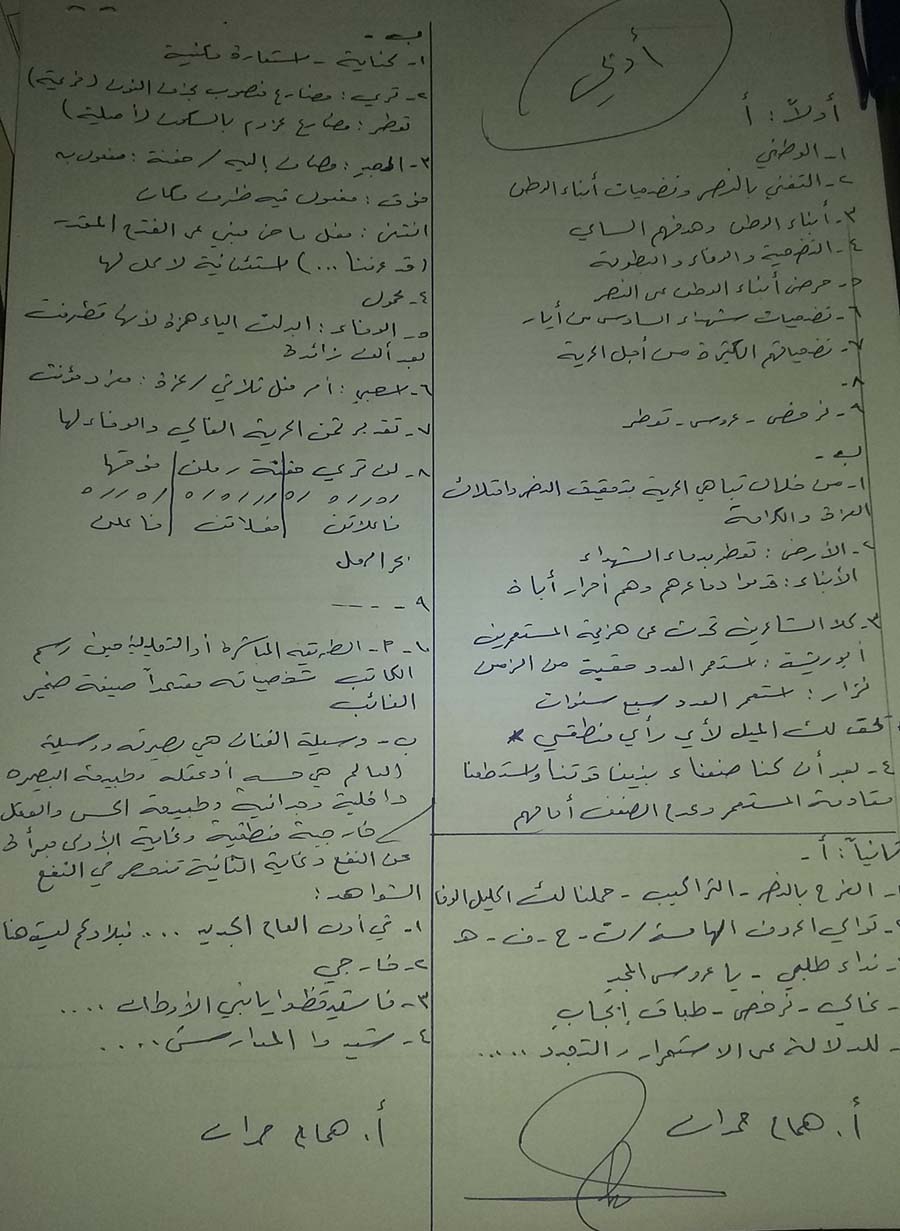 أدبي
أولاً: أ
١- الوطني
٢- التغني بالنصر وتضحيات أبناء الوطن
٣- أبناء الوطن وهدفهم السامي
٤- التضحية والوفاء والبطولة
٥- حرص أبناء الوطن على النصر
٦- تضحيات شهداء السادس من أيار
٧- تضحياتهم الكثيرة من أجل الحرية
٨-
٩- نرخص - عروس - تعطر
ب-
١- من خلال تباهي الحرية بتحقيق النصر وامتلاك
العزة والكرامة
٢- الأرض: تعطر بدماء الشهداء
الأبناء: قدموا دماءهم وهم أحرار أباة
٣- كلا الشاعرين تحدث عن هزيمة المستعمرين
أبو ريشة: استعمر العدو حقبة من الزمن
نزار: استعمر العدو سبع سنوات
يحق لك الميل لأي رأي منطقي *
٤- بعد أن كنا ضعفاء بنينا قوتنا واستطعنا
مقاومة المستعمر وعدم الضعف أمامهم
ثانياً: أ-
١- الفرح بالنصر - التراكيب - حملنا لك إكليل الوفا
٢- توالي الحروف الهامسة / ت - ح - ف - هـ
نداء طلبي - يا عروس المجد
- غالي - نرخص - طباق إيجاب
- للدلالة على الاستمرار والتجدد .....
أ. همام حمدان
ب-
١- كناية - استعارة مكنية
٢- تري: مضارع منصوب بحذف النون (فرعية)
تعطر: مضارع مجزوم بالسكون (أصلية)
٣- المجد: مضاف إليه / حفنة: مفعول به
فوق: مفعول فيه ظرف مكان
انتشى: فعل ماض مبني على الفتح المقدر
(قد عرفنا ...) استئنافية لا محل لها
٤- محمول
٥- الوفاء: ابدلت الياء همزة لأنها تطرفت
بعد ألف زائدة
٦- اسحبي: أمر فعل ثلاثي / عزة: مفرد مؤنث
٧- تقدير ثمن الحرية الغالي والوفاء لها
٨- لن تري حفنة رملن فوقها
/ه//ه/ه ///ه/ه /ه//ه
فاعلاتن | فعلاتن | فاعلن
بحر الرمل
٩- ----
١٠- ٢- الطريقة المباشرة أو التحليلية حين رسم
الكاتب شخصياته معتمداً صيغة ضمير
الغائب
ب- وسيلة الفنان هي بصيرته ووسيلة
العالم هي حسه أو عقله وطبيعة البصيرة
داخلية وجدانية وطبيعة الحس والعقل
خارجية منطقية وغاية الأولى مبرأة
عن النفع وغاية الثانية تنحصر في النفع
الشواهد:
١- في أول العام الجديد .... فبلادكم ليست هنا
٢- خارجي
٣- فاستيقظوا يا بني الأوطان ....
٤- شيدوا المدارس ....
أ. همام حمدان